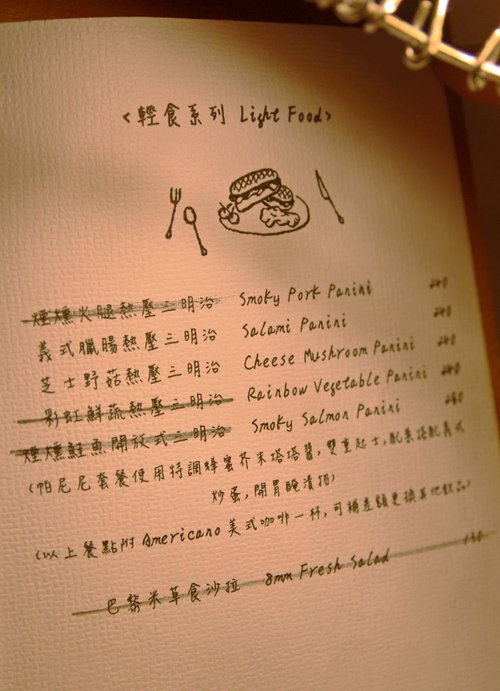 <輕食系列 Light Food>
煙燻火腿熱壓三明治 Smoky Pork Panini 240
義式臘腸熱壓三明治 Salami Panini
芝士野菇熱壓三明治 Cheese Mushroom Panini 240
彩虹鮮蔬熱壓三明治 Rainbow Vegetable Panini 240
煙燻鮭魚開放式三明治 Smoky Salmon Panini 280
(帕尼尼套餐使用特調蜂蜜芥末塔塔醬,雙重起士,配菜搭配義式
炒蛋,開胃醃漬物)
(以上餐點附 Americano 美式咖啡一杯,可補差額更換其他飲品)
巴黎米草食沙拉 8mm Fresh Salad 130